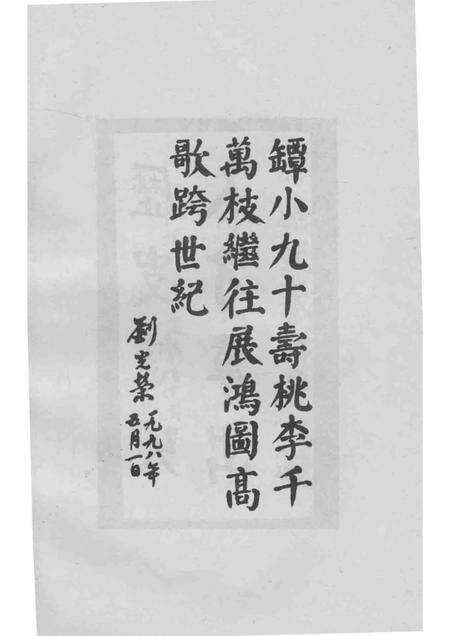 鐔小九十壽桃李千
萬枝繼往展鴻圖高
歌跨世紀
劉光榮
一九九八年
五月一日